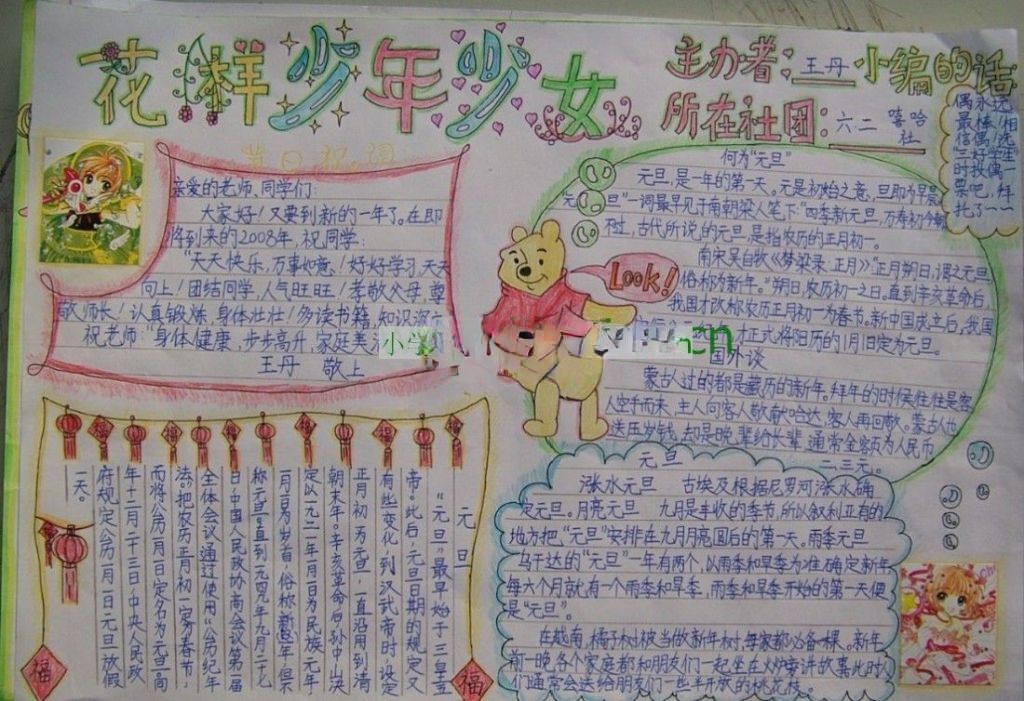 花样少年少女
主办者:王丹
所在社团:六二 嘻哈
社
小编的话
偶永远
最棒!相
信偶!选
三好学生
时投偶一
票吧,拜
托了~~
节日祝词
亲爱的老师,同学们:
大家好!又要到新的一年了。在即
将到来的2008年,祝同学:
“天天快乐,万事如意、!好好学习,天天
向上!团结同学,人气旺旺!孝敬父母,尊
敬师长!认真锻炼,身体壮壮!多读书籍,知识
祝老师:“身体健康,步步高升,家庭美
王丹 敬上
何为“元旦”
元旦,是一年的第一天。元是初始之意,旦即为早晨
“元旦”一词最早见于南朝梁人笔下“四季新元旦,万寿初今朝
不过,古代所说的元旦,是指农历的正月初一。
南宋吴自牧《梦梁录·正月》“正月朔日,谓之元旦
俗称为新年。”朔日,农历初一之日。直到辛亥革命后,
我国才改称农历正月初一为春节。新中国成立后,我国
才正式将阳历的1月1日定为元旦。
国外谈
蒙古人过的都是藏历的新年。拜年的时候往往是客
人空手而来,主人向客人敬献哈达,客人再回敬。蒙古人也
送压岁钱,却是晚辈给长辈,通常金额为人民币
二、三元。
Look!
小学
cn
元旦
“元旦”最早始于三皇五
帝。此后,元旦日期的规定又
有些变化,到汉武帝时设定
正月初一为元旦,一直沿用到清
朝末年。辛亥革命后孙中山决
定以一九一二年一月一日为民族元年
一月言为岁首,俗称新年,但不
称元旦。直到一九四九年九月二十七
日,中国人民政协商会议第一届
全体会议通过使用“公历纪年
法”,把农历正月初一定为春节,
而将公历一月一日定名为元旦。一九四九
年十二月二十三日,中央人民政
府规定公历一月一日元旦放假
一天。
福
福
元旦
涨水元旦 古埃及根据尼罗河涨水确
定元旦。月亮元旦 九月是丰收的季节,所以叙利亚有的
地方把“元旦”安排在九月月亮圆后的第一天。雨季元旦
乌干达的“元旦”一年有两个,以雨季和旱季为准确定新年
每六个月就有一个雨季和旱季,雨季和旱季开始的第一天便
是“元旦”。
在越南,橘子树被当做新年树,每家都必备一棵。新年
前一晚,各个家庭都和朋友们一起坐在火炉旁讲故事,此时人
们通常会送给朋友们一些半开放的桃花枝。